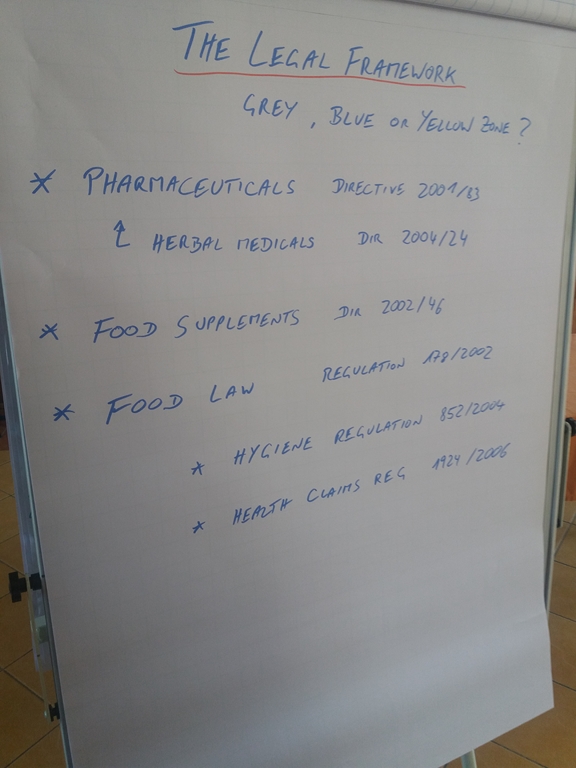 THE LEGAL FRAMEWORK
GREY, BLUE OR YELLOW ZONE?
* PHARMACEUTICALS DIRECTIVE 2001/83
HERBAL MEDICALS DIR 2004/24
* FOOD SUPPLEMENTS DIR 2002/46
* FOOD LAW REGULATION 178/2002
* HYGIENE REGULATION 852/2004
* HEALTH CLAIMS REG 1924/2006